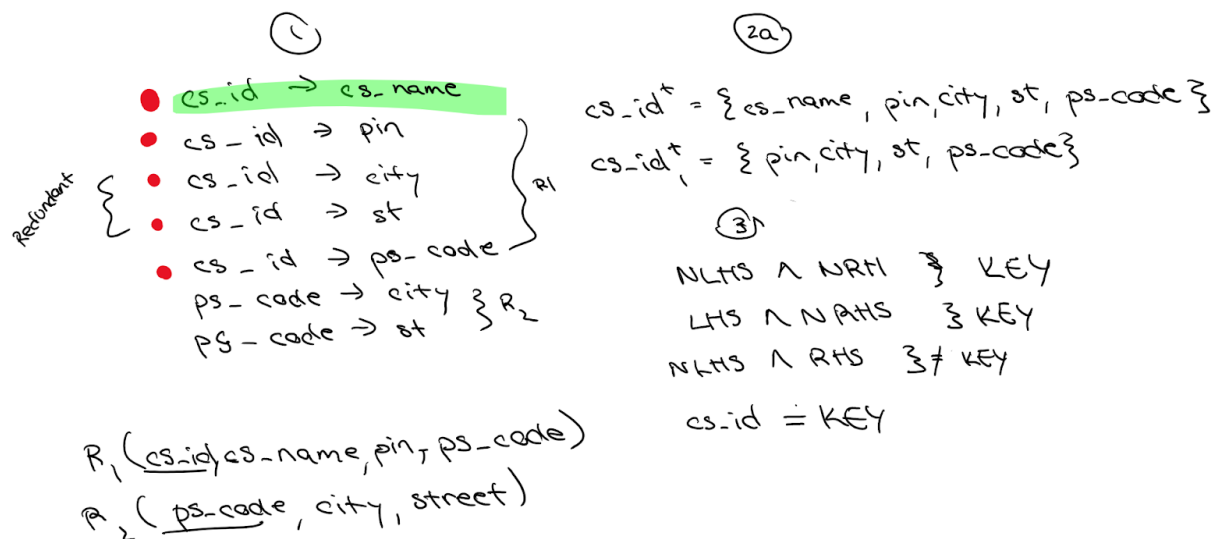 1
cs_id → cs_name
cs_id → pin
cs_id → city
cs_id → st
cs_id → ps_code
ps_code → city
ps_code → st
Redundant
R1
R2
R1 (cs_id, cs_name, pin, ps_code)
R2 (ps_code, city, street)
2a
cs_id⁺ = {cs_name, pin, city, st, ps_code}
cs_id⁺₁ = {pin, city, st, ps_code}
3
NLHS ∧ NRH } KEY
LHS ∧ NRHS } KEY
NLHS ∧ RHS } ≠ KEY
cs_id ≐ KEY